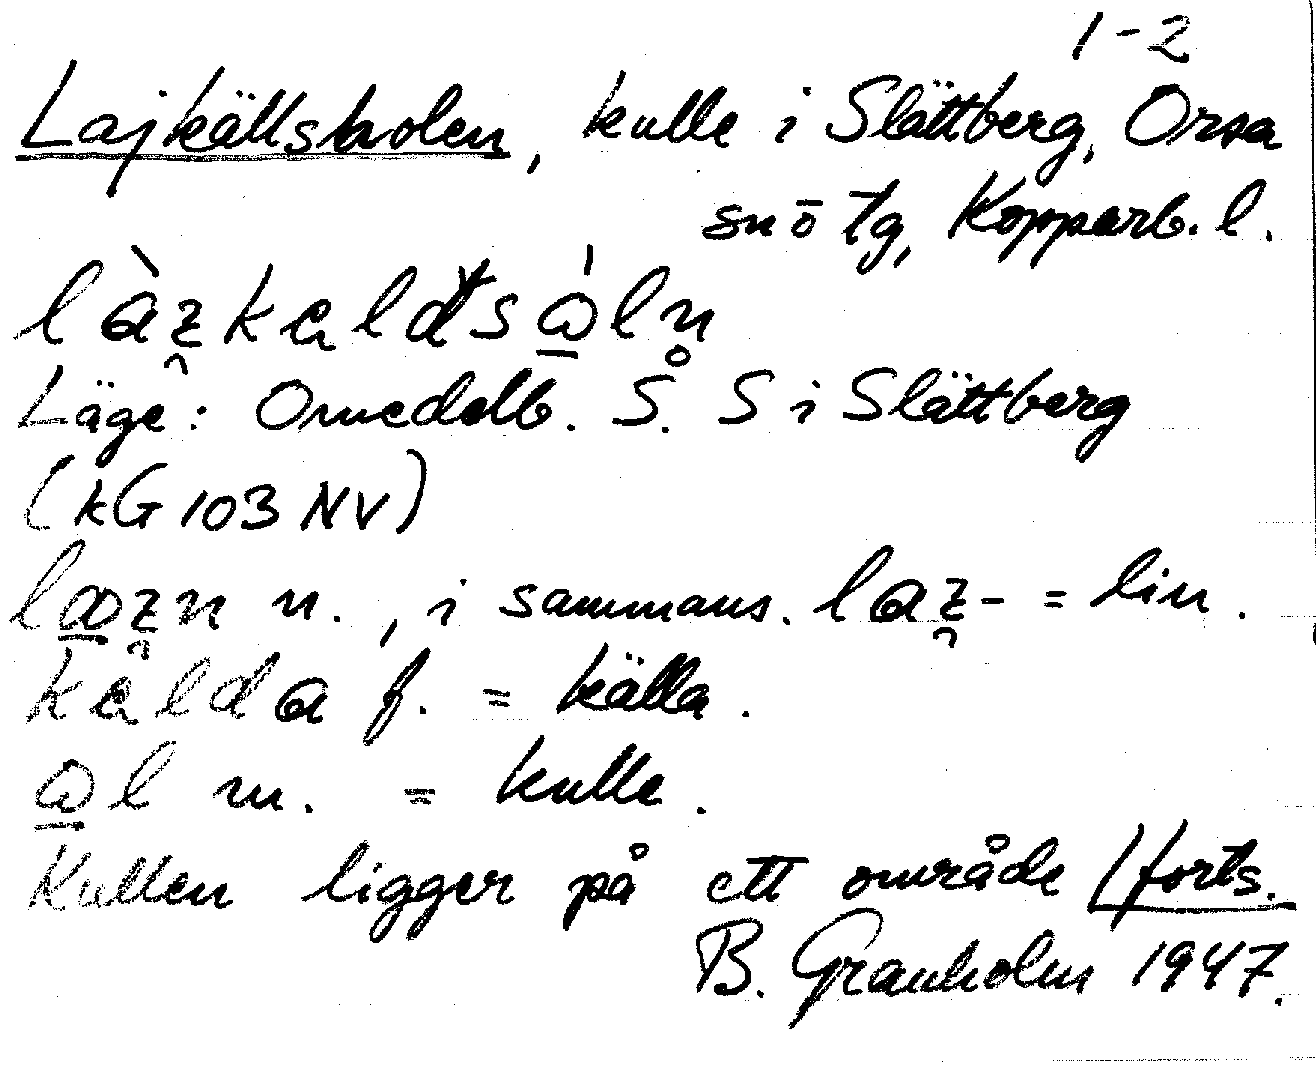 1-2
Lajkällsholen, kulle i Slättberg, Orsa
sn ō tg, Kopparb. l.
Läge: Omedelb. S. S i Slättberg
(KG 103 NV)
n., i sammans. = lin.
f. = källa.
m. = kulle.
Kullen ligger på ett område /forts.
B. Granholm 1947.